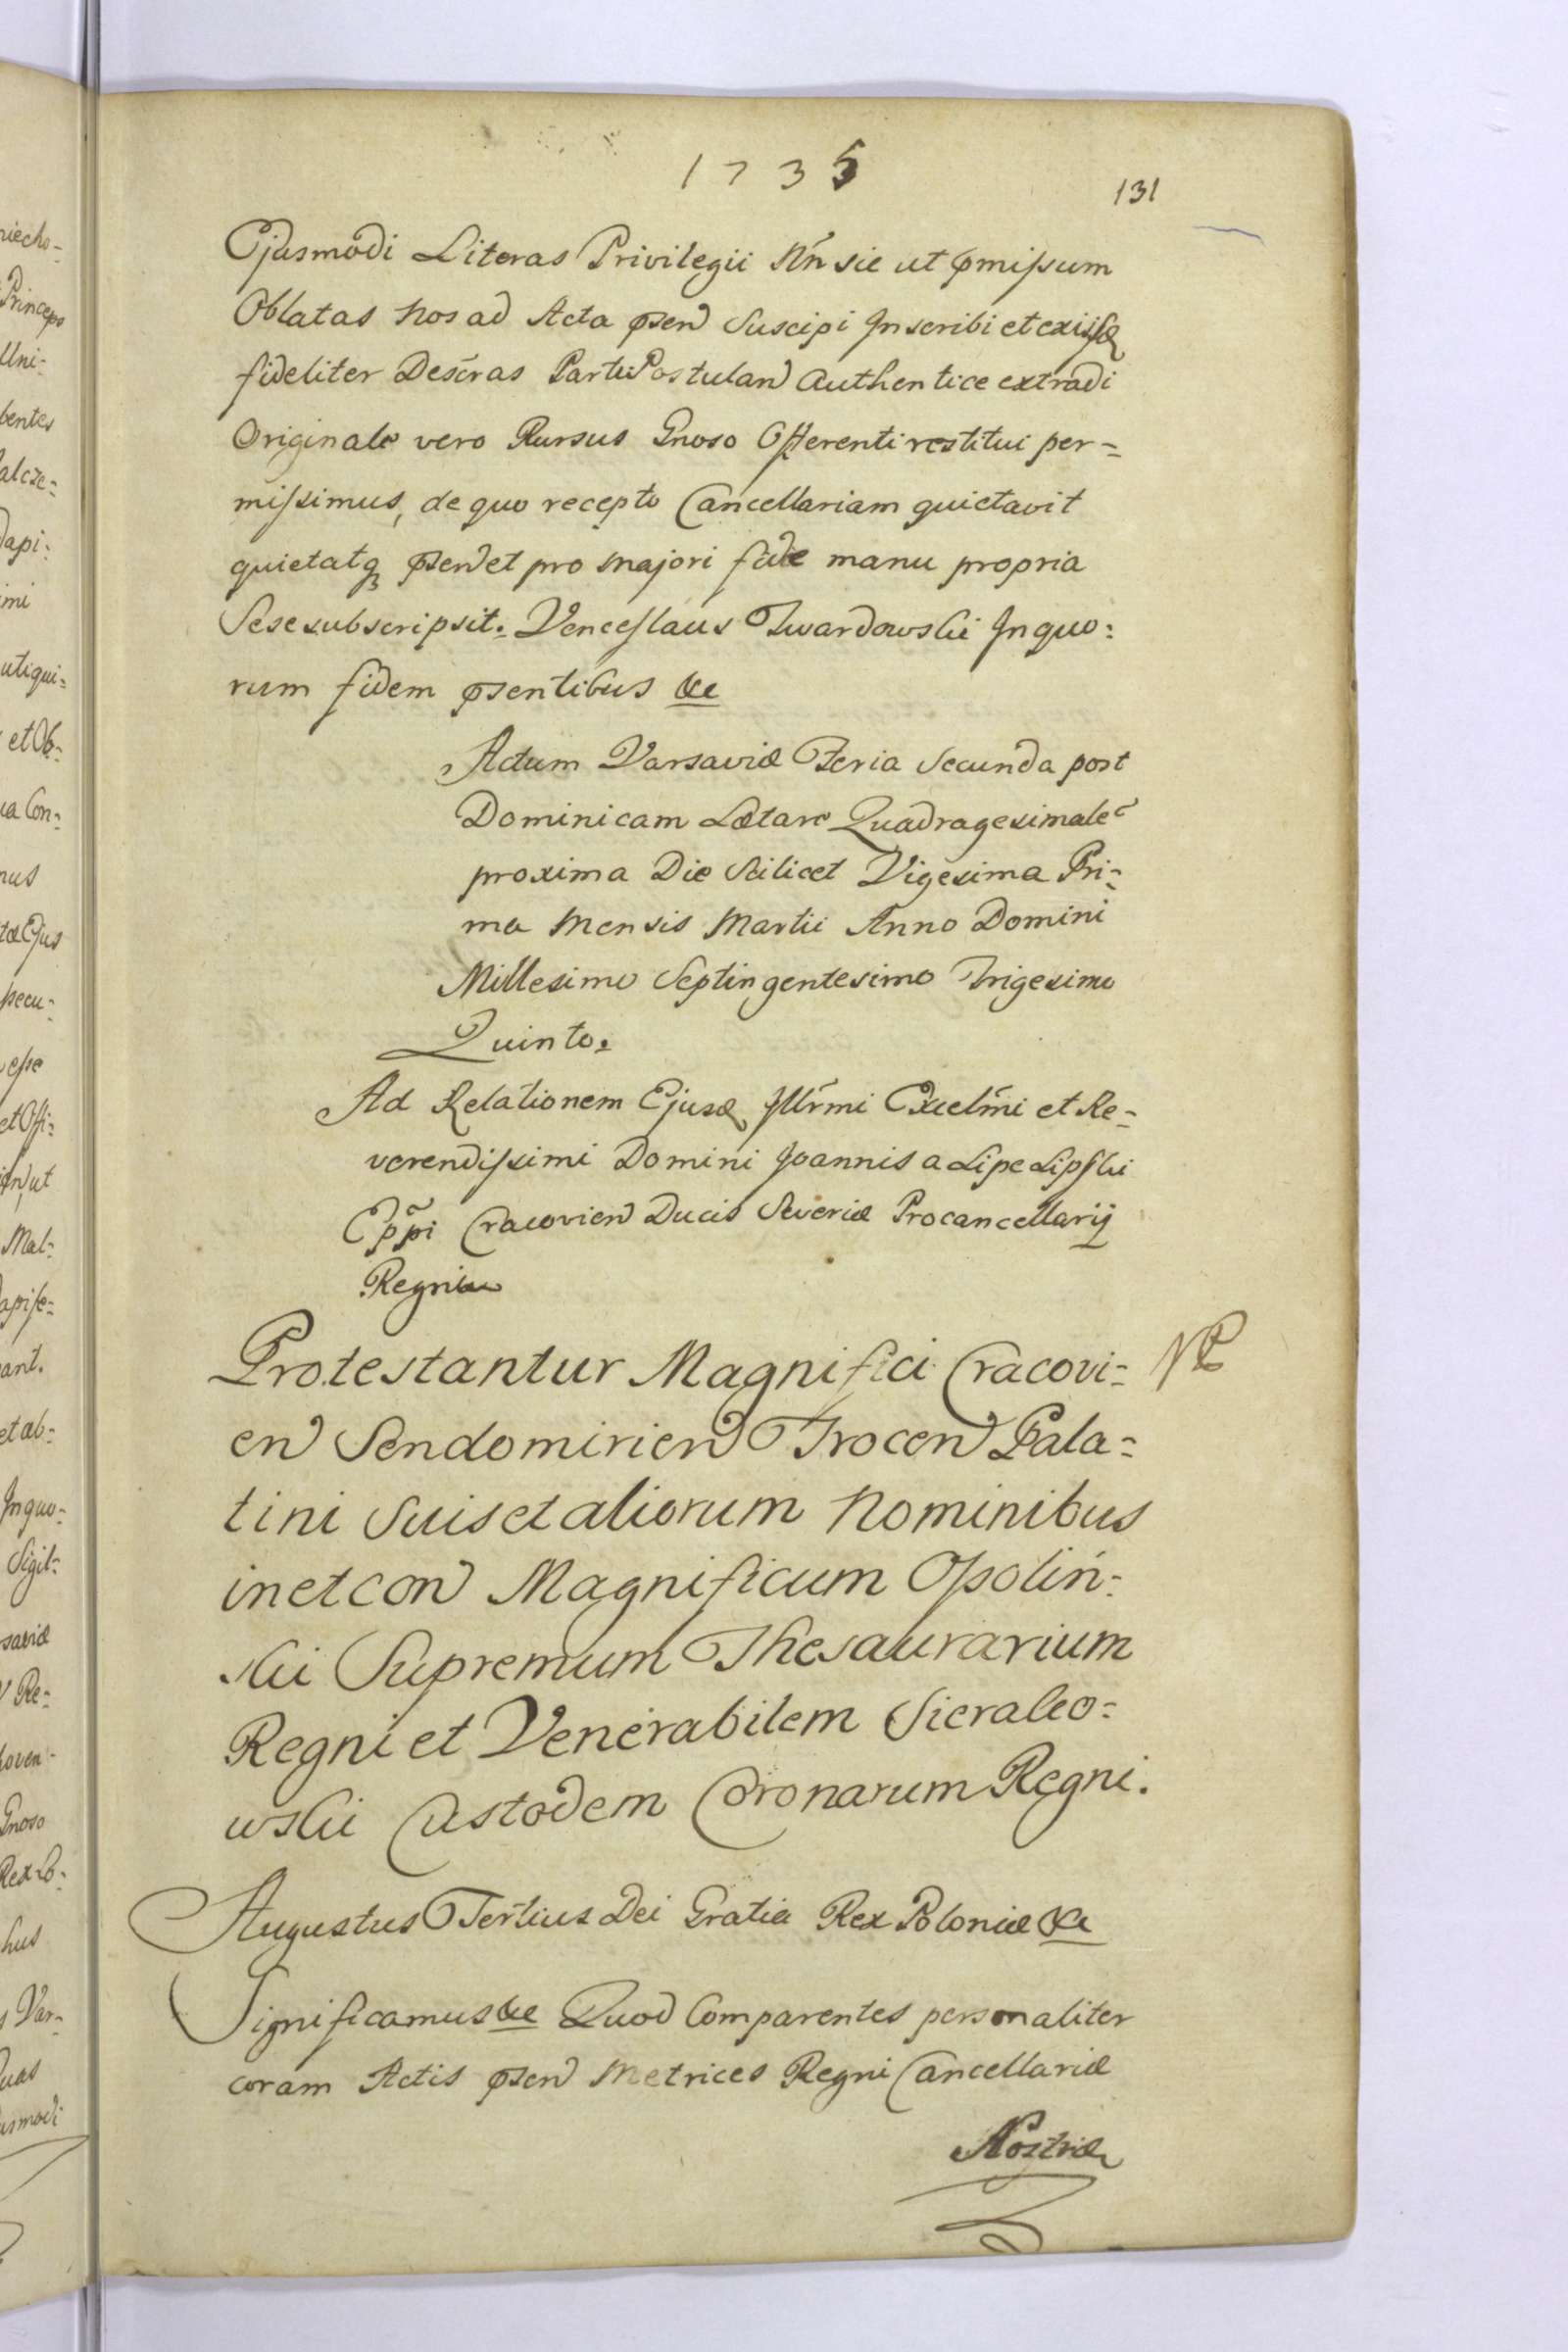 1735
131
Ejusmodi Literas Privilegii Nŕn sie ut pmissum
Oblatas Nos ad Acta psen Suscipi Inscribi et exiisd
fideliter Descras Parti Postulan Authentice extradi
Originale vero Rursus Gnoso Offerenti restitui per=
missimus, de quo recepto Cancellariam quietavit
quietatq psen et pro majori fide manu propria
Sese subscripsit. Venceslaus Twardowski In quo=
rum fidem psentibus &c
Actum Varsaviæ Feria Secunda post
Dominicam Lætare Quadragesimale
proxima Die Scilicet Vigesima Pri=
ma Mensis Martii Anno Domini
Millesimo Septingentesimo Trigesimo
Quinto.
Ad Relationem Ejusd Illrmi Excelmi et Re=
verendissimi Domini Joannis a Lipe Lipski
Eppi Cracovien Ducis Severiæ Procancellarij
Regni
Protestantur Magnifici Cracovi=
en Sendomirien Trocen Pala=
tini Suis et aliorum Nominibus
in et con Magnificum Ossolin=
ski Supremum Thesaurarium
Regni et Venerabilem Sierako=
wski Custodem Coronarum Regni.
Augustus Tertius Dei Gratia Rex Poloniæ &c
Significamus &c Quod Comparentes personaliter
coram Actis psen Metrices Regni Cancellariæ
Nostræ